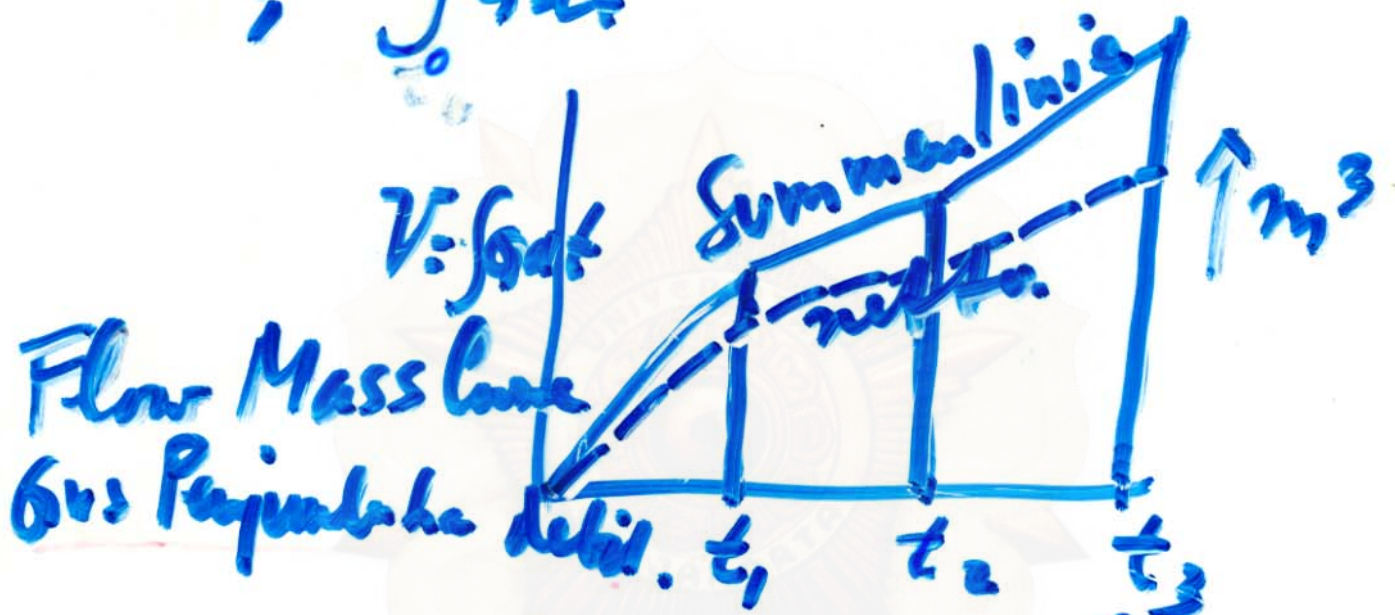 Summenlinie
V=∫Qdt
↑ m³
netto.
Flow Mass Curve
Grs Penjumlahan debit.
t₁ t₂ t₃